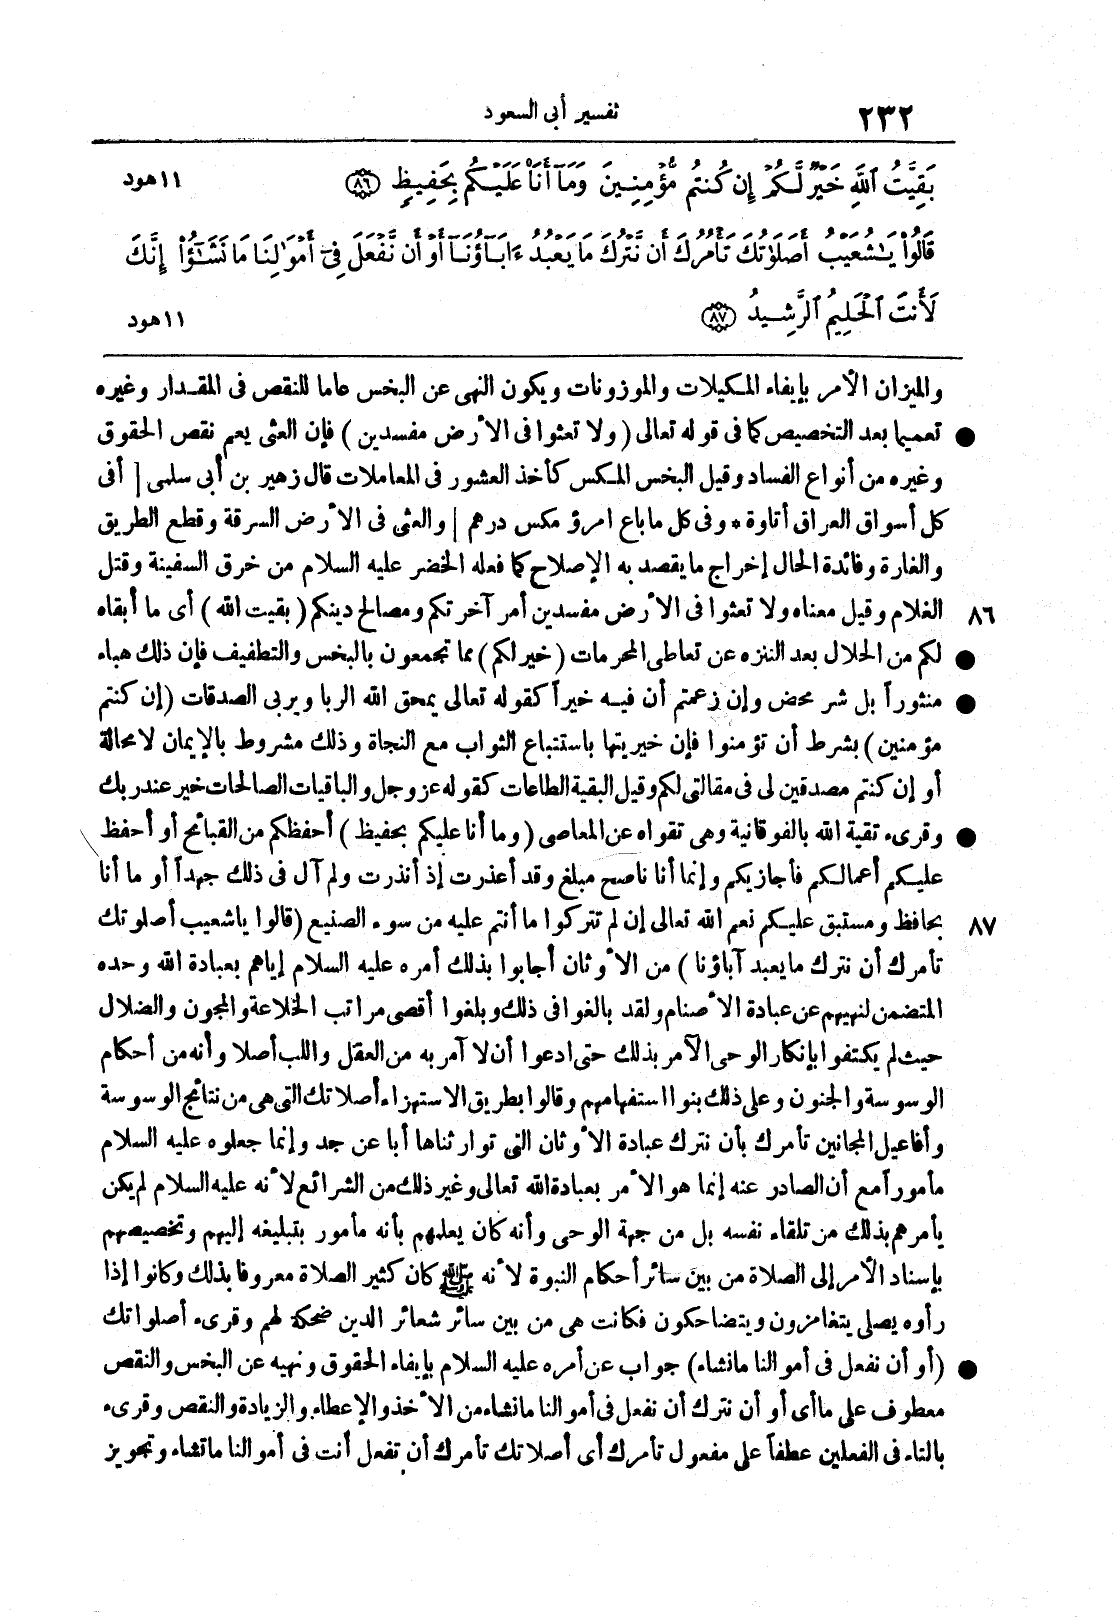 ٢٣٢ تفسير أبى السعود
بَقِيَّتُ ٱللَّهِ خَيْرٌ لَّكُمْ إِن كُنتُم مُّؤْمِنِينَ وَمَآ أَنَا۠ عَلَيْكُم بِحَفِيظٍ ﴿٨٦﴾ ١١ هود
قَالُوا۟ يَـٰشُعَيْبُ أَصَلَوٰتُكَ تَأْمُرُكَ أَن نَّتْرُكَ مَا يَعْبُدُ ءَابَآؤُنَآ أَوْ أَن نَّفْعَلَ فِىٓ أَمْوَٰلِنَا مَا نَشَـٰٓؤُا۟ إِنَّكَ
لَأَنتَ ٱلْحَلِيمُ ٱلرَّشِيدُ ﴿٨٧﴾ ١١ هود
والميزان الأمر بإيفاء المكيلات والموزونات ويكون النهى عن البخس عاما للنقص فى المقدار وغيره
● تعميما بعد التخصيص كما فى قوله تعالى (ولا تعثوا فى الأرض مفسدين) فإن العثى يعم نقص الحقوق
وغيره من أنواع الفساد وقيل البخس المكس كأخذ العشور فى المعاملات قال زهير بن أبى سلمى [أفى
كل أسواق العراق أتاوة * وفى كل ما باع امرؤ مكس درهم] والعثى فى الأرض السرقة وقطع الطريق
والغارة وفائدة الحال إخراج ما يقصد به الإصلاح كما فعله الخضر عليه السلام من خرق السفينة وقتل
٨٦ الغلام وقيل معناه ولا تعثوا فى الأرض مفسدين أمر آخرتكم ومصالح دينكم (بقيت الله) أى ما أبقاه
● لكم من الحلال بعد التنزه عن تعاطى المحرمات (خير لكم) مما تجمعون بالبخس والتطفيف فإن ذلك هباء
● منثوراً بل شر محض وإن زعمتم أن فيه خيراً كقوله تعالى يمحق الله الربا ويربى الصدقات (إن كنتم
مؤمنين) بشرط أن تؤمنوا فإن خيريتها باستتباع الثواب مع النجاة وذلك مشروط بالإيمان لا محالة
أو إن كنتم مصدقين لى فى مقالتى لكم وقيل البقية الطاعات كقوله عز وجل والباقيات الصالحات خير عند ربك
● وقرىء تقية الله بالفوقانية وهى تقواه عن المعاصى (وما أنا عليكم بحفيظ) أحفظكم من القبائح أو أحفظ
عليكم أعمالكم فأجازيكم وإنما أنا ناصح مبلغ وقد أعذرت إذ أنذرت ولم آل فى ذلك جهداً أو ما أنا
٨٧ بحافظ ومستبق عليكم نعم الله تعالى إن لم تتركوا ما أنتم عليه من سوء الصنيع (قالوا ياشعيب أصلوتك
تأمرك أن نترك ما يعبد آباؤنا) من الأوثان أجابوا بذلك أمره عليه السلام إياهم بعبادة الله وحده
المتضمن لنهيهم عن عبادة الأصنام ولقد بالغوا فى ذلك وبلغوا أقصى مراتب الخلاعة والمجون والضلال
حيث لم يكتفوا بإنكار الوحى الآمر بذلك حتى ادعوا أن لا آمر به من العقل واللب أصلا وأنه من أحكام
الوسوسة والجنون وعلى ذلك بنوا استفهامهم وقالوا بطريق الاستهزاء أصلاتك التى هى من نتائج الوسوسة
وأفاعيل المجانين تأمرك بأن نترك عبادة الأوثان التى توارثناها أبا عن جد وإنما جعلوه عليه السلام
مأموراً مع أن الصادر عنه إنما هو الأمر بعبادة الله تعالى وغير ذلك من الشرائع لأنه عليه السلام لم يكن
يأمرهم بذلك من تلقاء نفسه بل من جهة الوحى وأنه كان يعلمهم بأنه مأمور بتبليغه إليهم وتخصيصهم
بإسناد الأمر إلى الصلاة من بين سائر أحكام النبوة لأنه ﷺ كان كثير الصلاة معروفا بذلك وكانوا إذا
رأوه يصلى يتغامزون ويتضاحكون فكانت هى من بين سائر شعائر الدين ضحكة لهم وقرىء أصلواتك
● (أو أن نفعل فى أموالنا ما نشاء) جواب عن أمره عليه السلام بإيفاء الحقوق ونهيه عن البخس والنقص
معطوف على ما أى أو أن نترك أن نفعل فى أموالنا ما نشاء من الأخذ والإعطاء والزيادة والنقص وقرىء
بالتاء فى الفعلين عطفاً على مفعول تأمرك أى أصلاتك تأمرك أن تفعل أنت فى أموالنا ما تشاء وتجويز